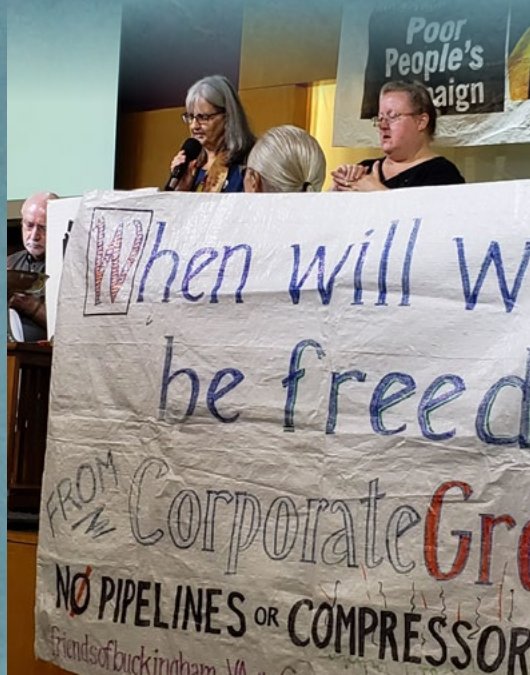 Poor
People's
paign
When will w
be freed
FROM Corporate Gre
NO PIPELINES OR COMPRESSOR
friendsofbuckingham VA